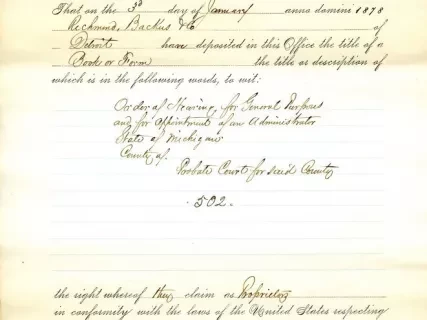 That on the 3d day of January anno domini 1878
Richmond, Backus & Co of
Detroit have deposited in this Office the title of a
Book or Form the title as description of
which is in the following words, to wit:
Order of Hearing, for General Purposes
and for Appointment of an Administrator
State of Michigan
County of.
Probate Court for said County
- 502 -
the right whereof they claim as Proprietors
in conformity with the laws of the United States respecting